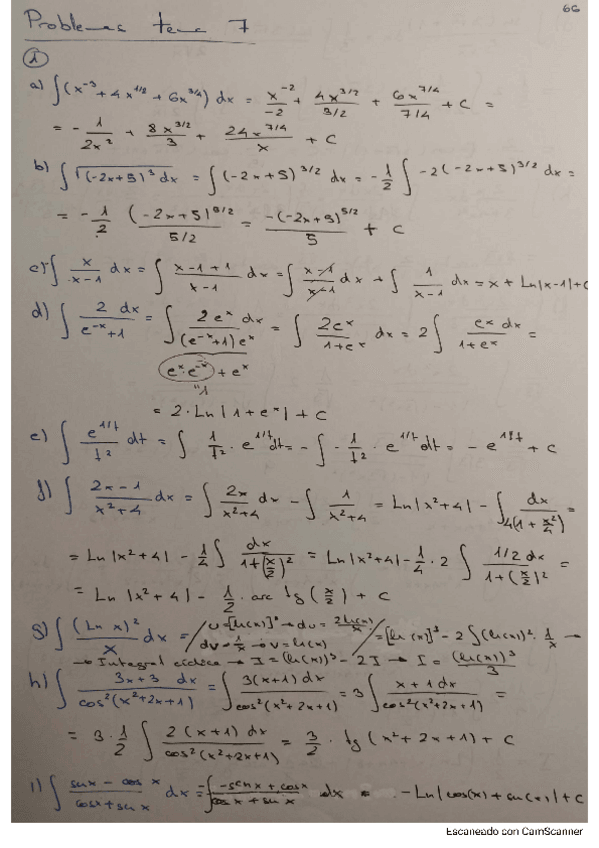 66
Problemas tema 7
1
a) ∫(x⁻³ + 4x^{1/2} + 6x^{3/4}) dx = x⁻²/-2 + 4x^{3/2}/3/2 + 6x^{7/4}/7/4 + C =
= - 1/2x² + 8x^{3/2}/3 + 24x^{7/4}/x + C
b) ∫√(-2x+5)³ dx = ∫(-2x+5)^{3/2} dx = -1/2 ∫ -2(-2x+5)^{3/2} dx =
= - 1/2 (-2x+5)^{5/2}/5/2 = -(-2x+5)^{5/2}/5 + C
c) ∫ x/x-1 dx = ∫ x-1+1/x-1 dx = ∫ x-1/x-1 dx + ∫ 1/x-1 dx = x + Ln|x-1| + C
d) ∫ 2 dx/e⁻ˣ+1 = ∫ 2eˣ dx/(e⁻ˣ+1)eˣ = ∫ 2eˣ/1+eˣ dx = 2∫ eˣ dx/1+eˣ =
eˣ·e⁻ˣ + eˣ
"1
= 2·Ln|1+eˣ| + C
e) ∫ e^{1/t}/t² dt = ∫ 1/t² · e^{1/t} dt = -∫ - 1/t² · e^{1/t} dt = - e^{1/t} + C
f) ∫ 2x-1/x²+4 dx = ∫ 2x/x²+4 dx - ∫ 1/x²+4 = Ln|x²+4| - ∫ dx/4(1+x²/4) =
= Ln|x²+4| - 1/4 ∫ dx/1+(x/2)² = Ln|x²+4| - 1/4 · 2 ∫ 1/2 dx/1+(x/2)² =
= Ln|x²+4| - 1/2 · arc tg(x/2) + C
g) ∫ (Ln x)²/x dx = / u=[ln(x)]² → du = 2ln(x)/x dv = 1/x → v = ln(x) / = [ln(x)]³ - 2∫(ln(x))² · 1/x →
→ Integral cíclica → I = (ln(x))³ - 2I → I = (ln(x))³/3
h) ∫ 3x+3 dx/cos²(x²+2x+1) = ∫ 3(x+1) dx/cos²(x²+2x+1) = 3∫ x+1 dx/cos²(x²+2x+1) =
= 3·1/2 ∫ 2(x+1) dx/cos²(x²+2x+1) = 3/2 · tg(x²+2x+1) + C
i) ∫ senx - cos x/cosx + sen x dx = -∫ -senx + cosx/cosx + senx dx = -Ln|cos(x) + sen(x)| + C
Escaneado con CamScanner